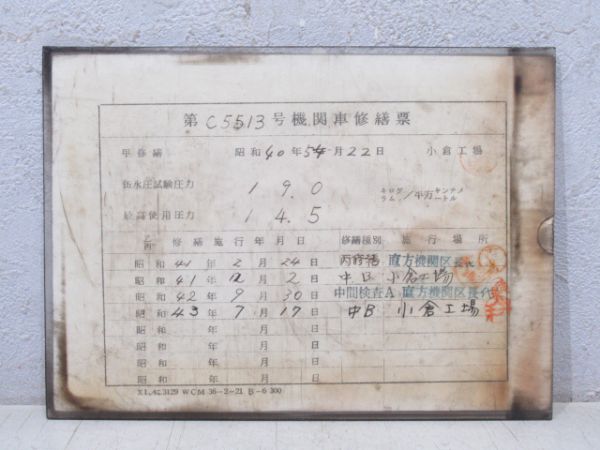 第 C5513 号機関車修繕票
甲修繕 昭和 40 年 5 月 22 日 小倉工場
缶水圧試験圧力 1 9.0 キログラム/平方センチメートル
最高使用圧力 1 4.5
修繕施行年月日 修繕種別 施行場所
昭和 41 年 2 月 24 日 直方機関区長代
昭和 41 年 12 月 2 日 中B 小倉工場
昭和 42 年 9 月 30 日 中間検査A 直方機関区長代
昭和 43 年 7 月 17 日 中B 小倉工場
昭和 年 月 日
昭和 年 月 日
昭和 年 月 日
昭和 年 月 日
3129 WCM 36-2-21 B-6 300